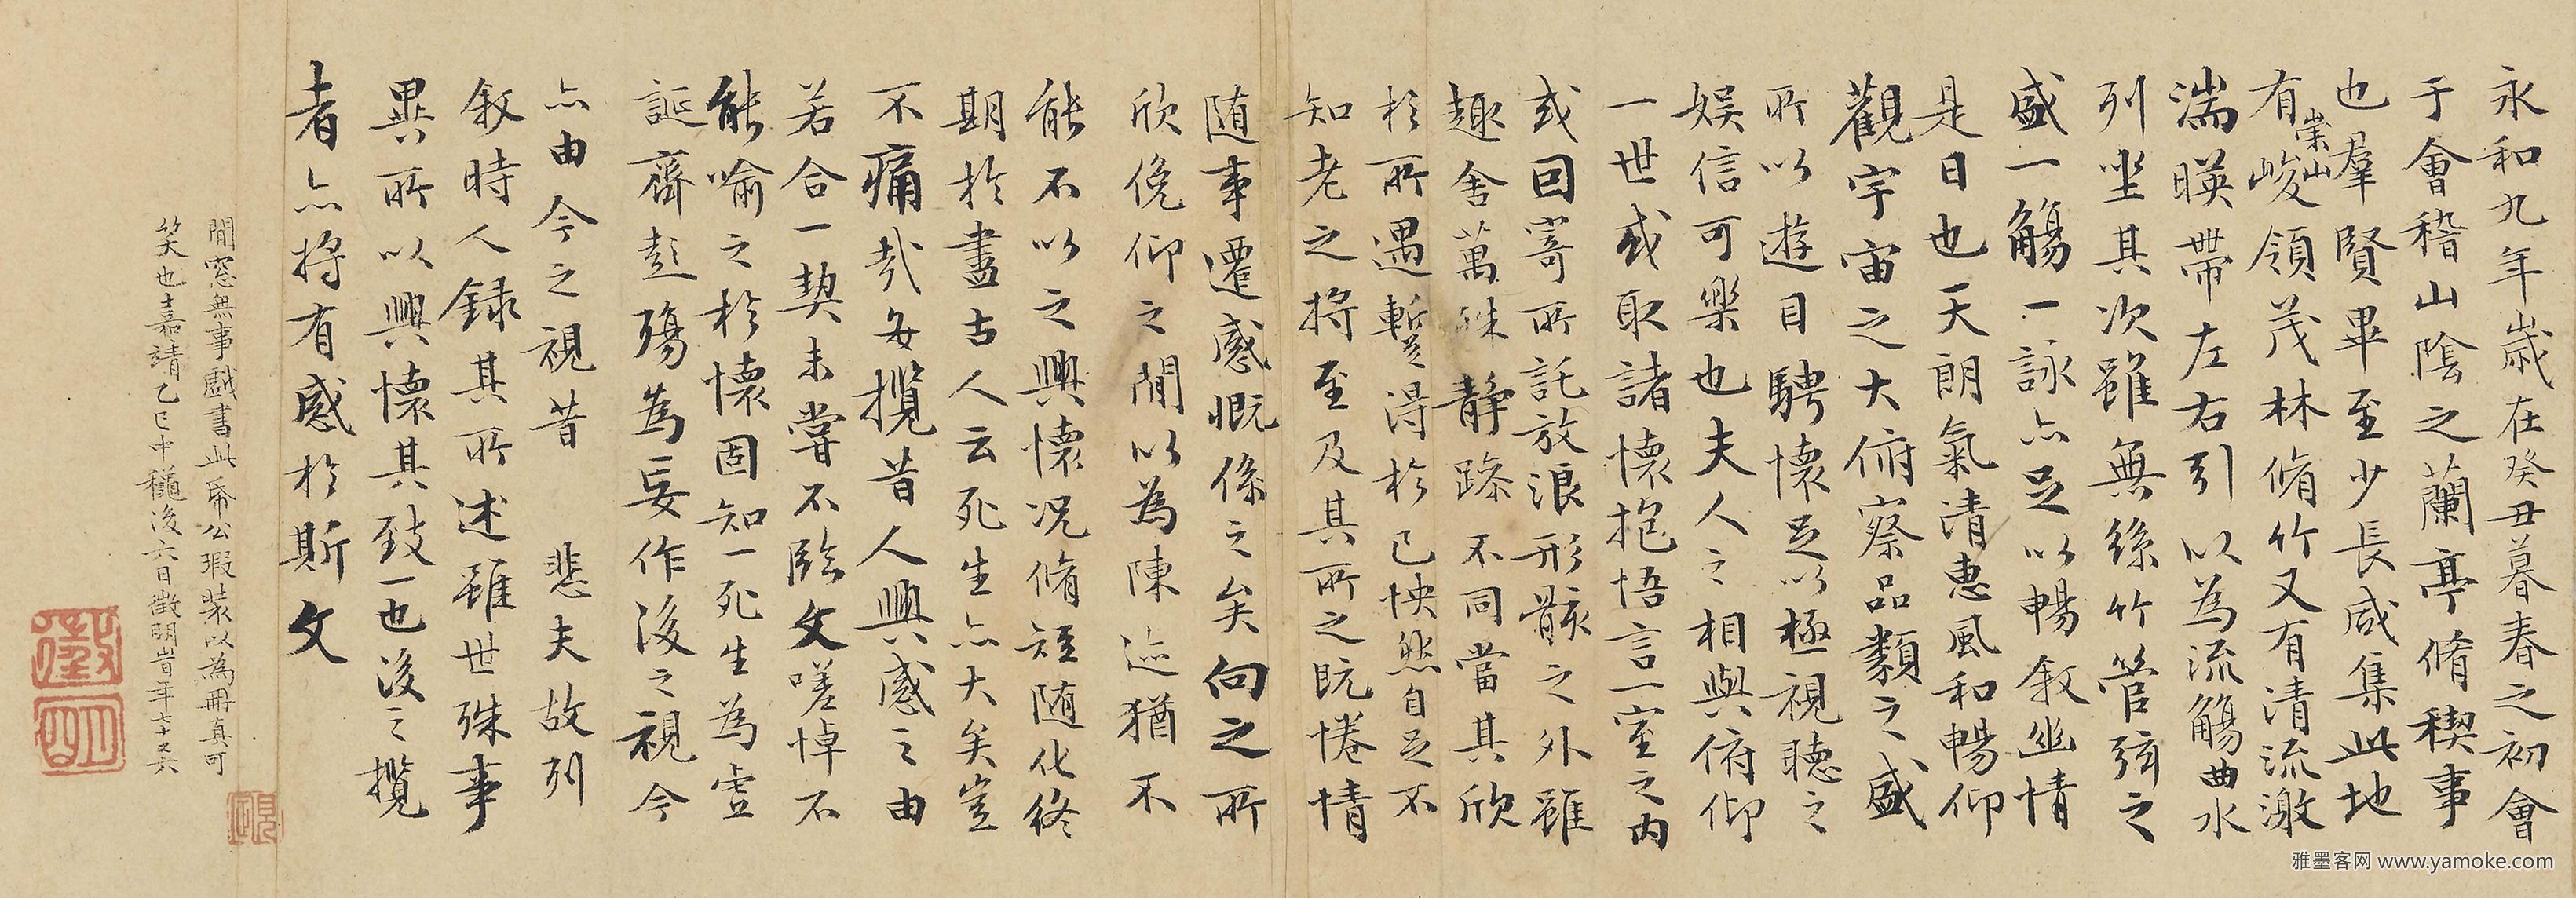 永和九年歲在癸丑暮春之初會
于會稽山陰之蘭亭脩稧事
也羣賢畢至少長咸集此地
有崇山峻領茂林脩竹又有清流激
湍暎帶左右引以為流觴曲水
列坐其次雖無絲竹管弦之
盛一觴一詠亦足以暢敘幽情
是日也天朗氣清惠風和暢仰
觀宇宙之大俯察品類之盛
所以遊目騁懷足以極視聽之
娛信可樂也夫人之相與俯仰
一世或取諸懷抱悟言一室之內
或因寄所託放浪形骸之外雖
趣舍萬殊靜躁不同當其欣
於所遇蹔得於己怏然自足不
知老之將至及其所之既惓情
隨事遷感慨係之矣向之所
欣俛仰之閒以為陳迹猶不
能不以之興懷況脩短隨化終
期於盡古人云死生亦大矣豈
不痛哉每攬昔人興感之由
若合一契未嘗不臨文嗟悼不
能喻之於懷固知一死生為虛
誕齊彭殤為妄作後之視今
亦由今之視昔 悲夫故列
敘時人錄其所述雖世殊事
異所以興懷其致一也後之攬
者亦將有感於斯文
閒窓無事戲書此帋公瑕裝以為冊真可
笑也嘉靖乙巳中穐後六日徵明峕年七十又六
徵
明
雅墨客网 www.yamoke.com